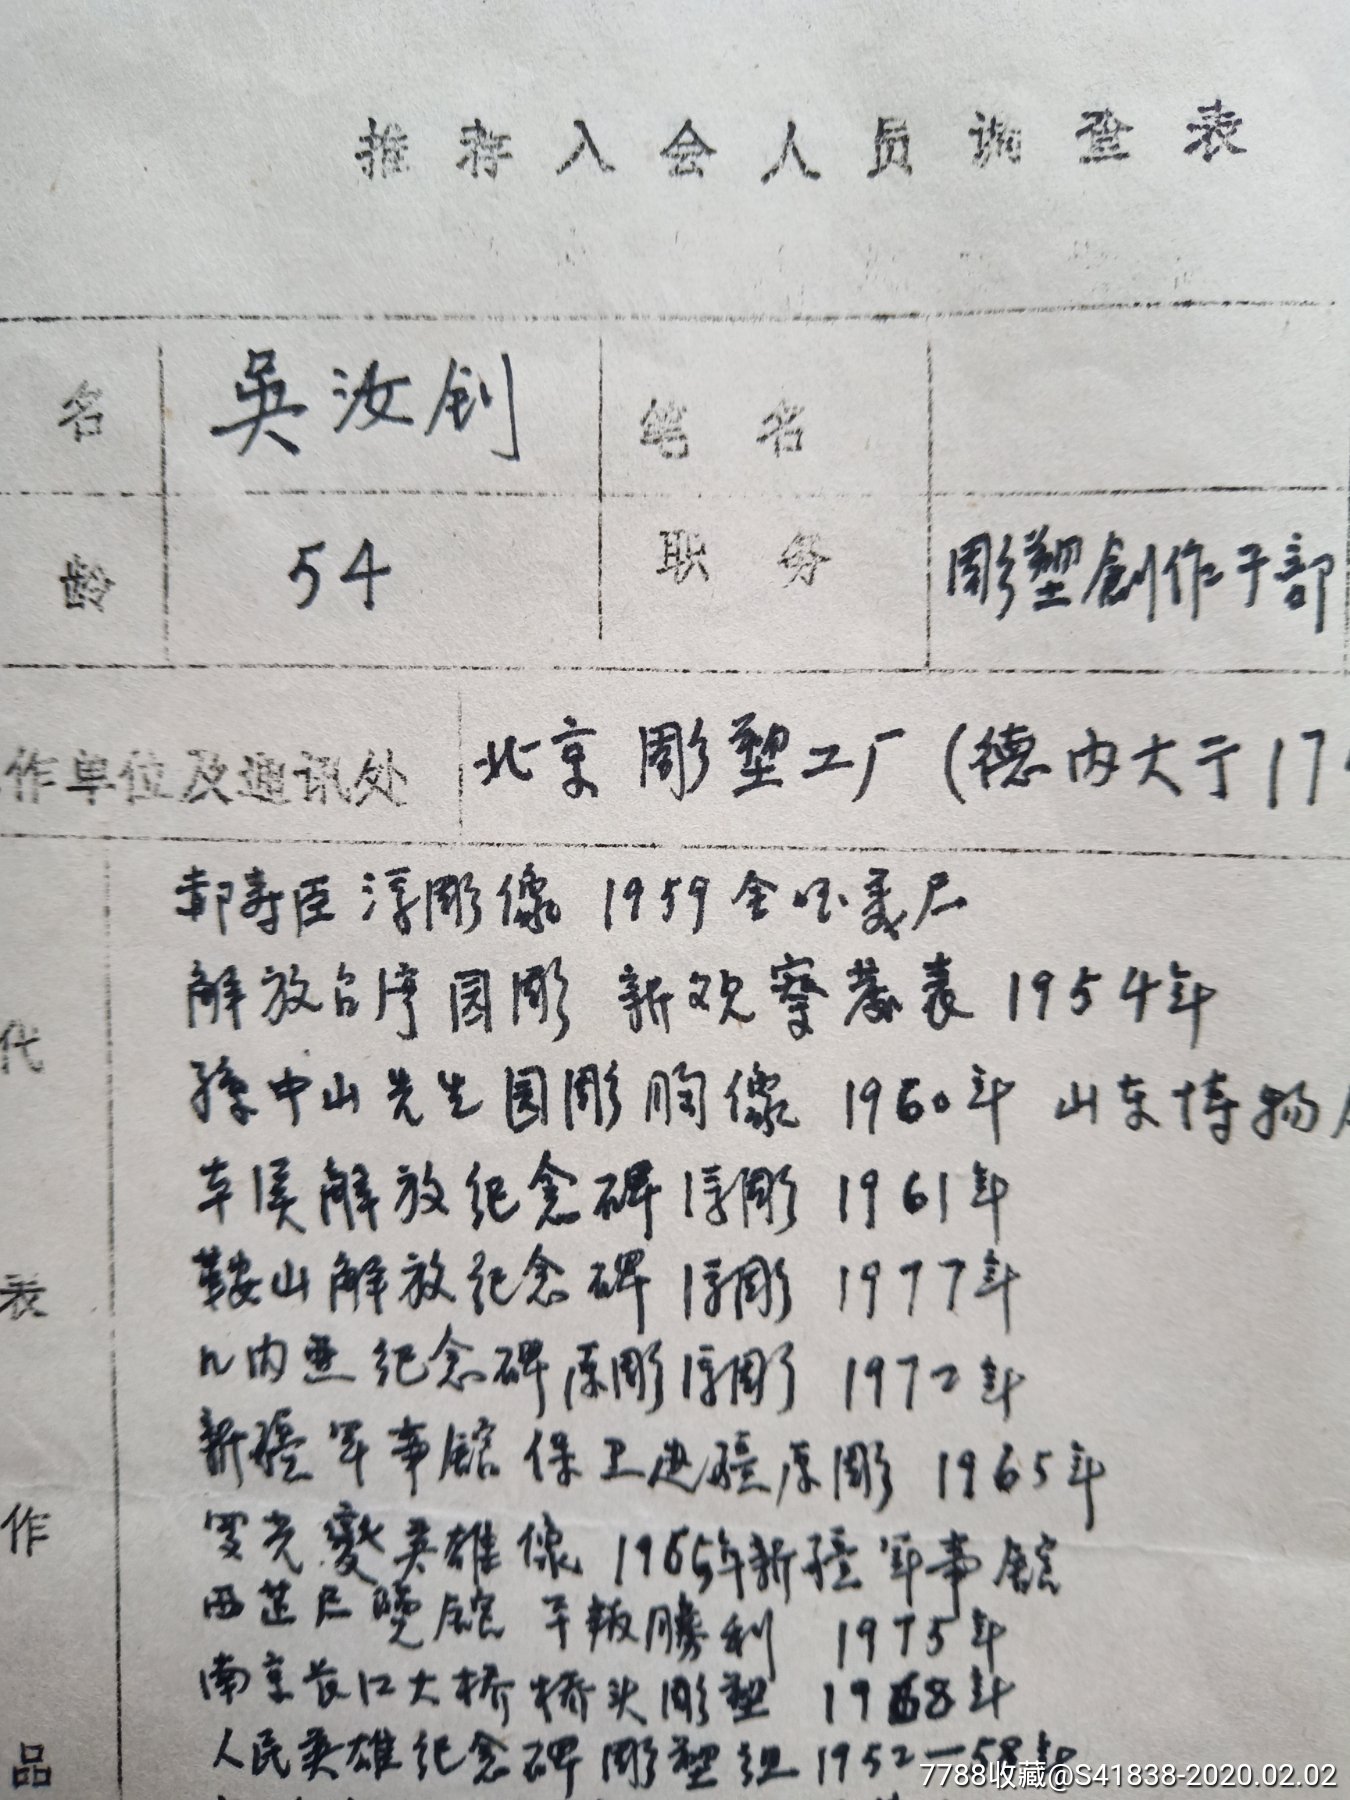 推荐入会人员调查表
名 吳汝釗 笔名
龄 54 职务 彫塑創作干部
作单位及通讯处 北京彫塑工厂(德内大于17
郝寿臣浮彫像 1959全国美展
解放台湾园彫 新观察发表 1954年
孫中山先生园彫胸像 1960年 山东博物
车侯解放纪念碑浮彫 1961年
鞍山解放纪念碑浮彫 1977年
几内亚纪念碑原彫浮彫 1972年
新疆军事馆保卫边疆原彫 1965年
罗光燮英雄像 1965年新疆军事馆
西芷展覽馆 平叛勝利 1975年
南京长江大桥桥头彫塑 1968年
人民英雄纪念碑彫塑组1952—58年
代
表
作
品
7788收藏@S41838-2020.02.02